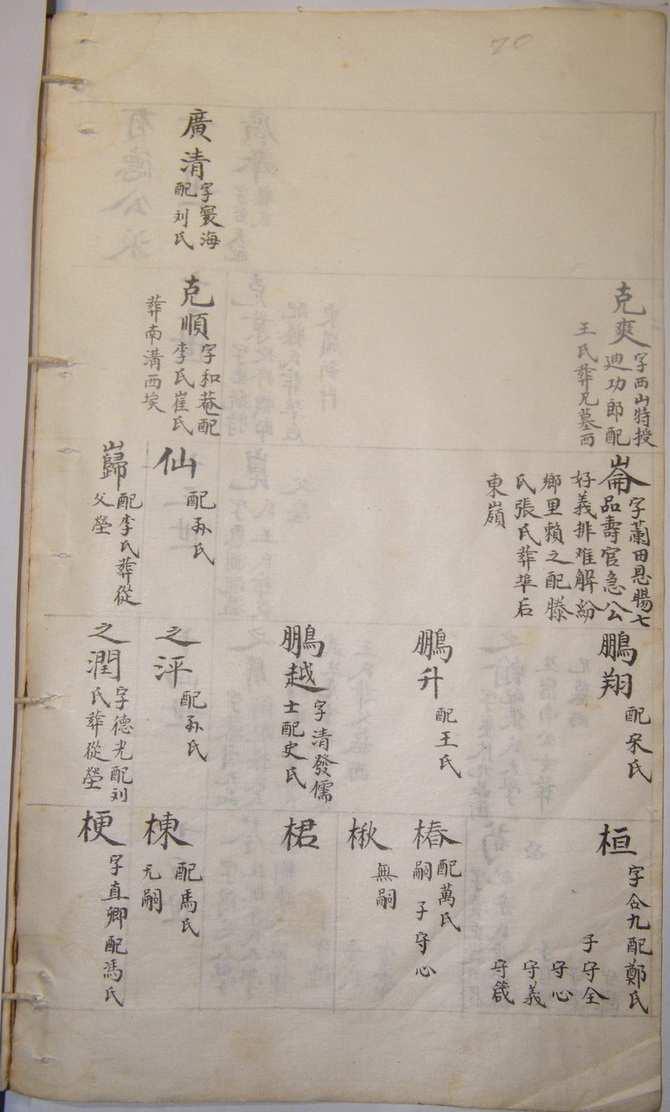 70
廣清
字寰海
配刘氏
克爽
字西山特授
迪功郎配
王氏葬兄墓西
克順
字和菴配
李氏崔氏
葬南溝西埃
崙
字蘭田恩賜七
品壽官急公
好義排难解紛
鄉里賴之配滕
氏張氏葬埠后
東嶺
仙
配孙氏
巋
配李氏葬從
父塋
鵬翔
配宋氏
鵬升
配王氏
鵬越
字清發儒
士配史氏
之泙
配孙氏
之潤
字德光配刘
氏葬從塋
桓
字公九配鄭氏
子守全
守心
守義
守箴
椿
配萬氏
嗣子守心
楸
無嗣
桾
棟
配馬氏
无嗣
梗
字直卿配馮氏